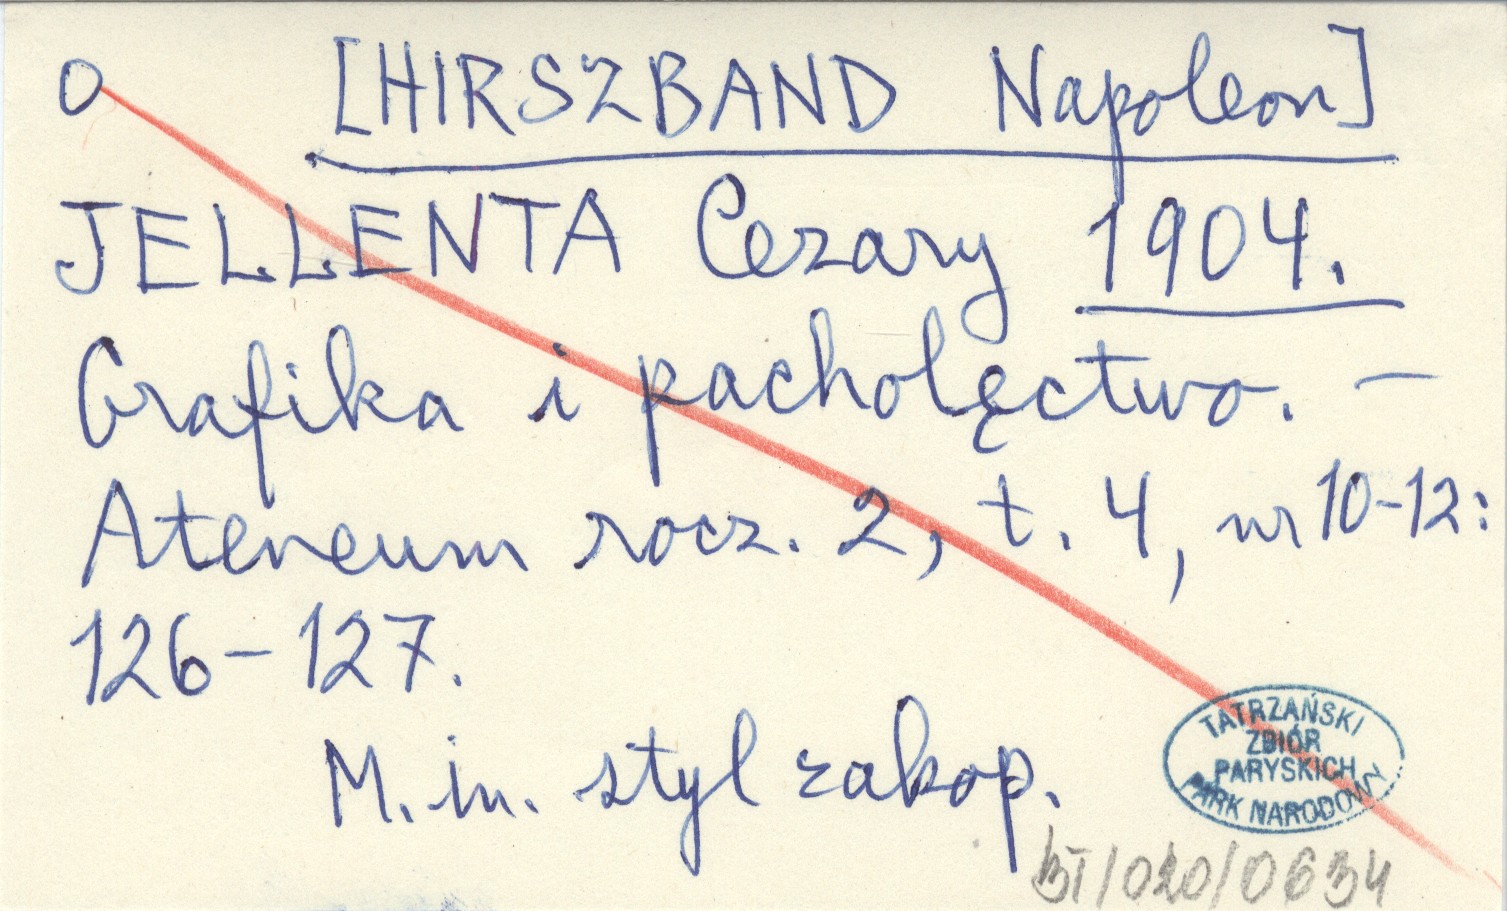 O [HIRSZBAND Napoleon]
JELLENTA Cezary 1904.
Grafika i pacholęctwo. –
Ateneum rocz. 2, t. 4, nr 10-12:
126-127.
M.in. styl zakop.
TATRZAŃSKI
ZBIÓR
PARYSKICH
PARK NARODOWY
BI/020/0634